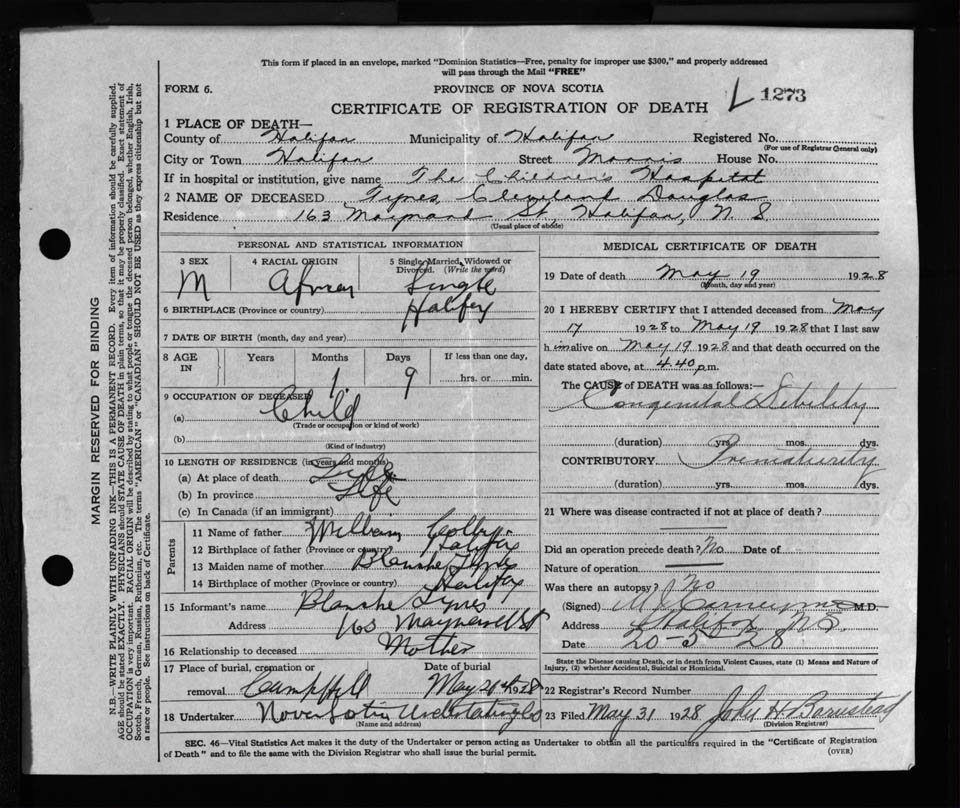 This form if placed in an envelope, marked "Dominion Statistics—Free, penalty for improper use $300," and properly addressed
will pass through the Mail "FREE"
FORM 6.
PROVINCE OF NOVA SCOTIA
CERTIFICATE OF REGISTRATION OF DEATH
L 1273
1 PLACE OF DEATH—
County of Halifax Municipality of Halifax Registered No.
(For use of Registrar General only)
City or Town Halifax Street Morris House No.
If in hospital or institution, give name The Children's Hospital
2 NAME OF DECEASED Tynes, Cleveland Douglas
Residence 163 Maynard St, Halifax, N. S
(Usual place of abode)
PERSONAL AND STATISTICAL INFORMATION
3 SEX 4 RACIAL ORIGIN 5 Single, Married, Widowed or Divorced. (Write the word)
M African Single
6 BIRTHPLACE (Province or country) Halifax
7 DATE OF BIRTH (month, day and year)
8 AGE IN Years Months Days If less than one day,
1 9 hrs. or min.
9 OCCUPATION OF DECEASED
(a) Child
(Trade or occupation or kind of work)
(b)
(Kind of industry)
10 LENGTH OF RESIDENCE (in years and months)
(a) At place of death Life
(b) In province Life
(c) In Canada (if an immigrant)
Parents
11 Name of father William
12 Birthplace of father (Province or country) Halifax
13 Maiden name of mother Blanche Tynes
14 Birthplace of mother (Province or country) Halifax
15 Informant's name Blanche Tynes
Address 163 Maynard St
16 Relationship to deceased Mother
17 Place of burial, cremation or Date of burial
removal Camp Hill May 21st 1928
18 Undertaker Nova Scotia Undertaking Co
(Name and address)
MEDICAL CERTIFICATE OF DEATH
19 Date of death May 19 1928
(Month, day and year)
20 I HEREBY CERTIFY that I attended deceased from May
17 1928 to May 19 1928 that I last saw
him alive on May 19 1928 and that death occurred on the
date stated above, at 4.40 p.m.
The CAUSE of DEATH was as follows:—
Congenital Debility
(duration) yrs. mos. dys.
CONTRIBUTORY Prematurity
(duration) yrs. mos. dys.
21 Where was disease contracted if not at place of death?
Did an operation precede death? No Date of
Nature of operation
Was there an autopsy? No
(Signed) M.D.
Address Halifax NS
Date 20-5-28
State the Disease causing Death, or in death from Violent Causes, state (1) Means and Nature of
Injury, (2) whether Accidental, Suicidal or Homicidal.
22 Registrar's Record Number
23 Filed May 31 1928 John H Barnstead
(Division Registrar)
SEC. 46—Vital Statistics Act makes it the duty of the Undertaker or person acting as Undertaker to obtain all the particulars required in the "Certificate of Registration
of Death" and to file the same with the Division Registrar who shall issue the burial permit.
(OVER)
MARGIN RESERVED FOR BINDING
N.B.—WRITE PLAINLY WITH UNFADING INK—THIS IS A PERMANENT RECORD. Every item of information should be carefully supplied.
AGE should be stated EXACTLY. PHYSICIANS should STATE CAUSE OF DEATH in plain terms, so that it may be properly classified. Exact statement of
OCCUPATION is very important. RACIAL ORIGIN will be described by stating to what people or tongue the deceased person belonged, whether English, Irish,
Scotch, French, German, Russian, Ruthenian, etc. The terms "AMERICAN" or "CANADIAN" SHOULD NOT BE USED as they express citizenship but not
a race or people. See instructions on back of Certificate.